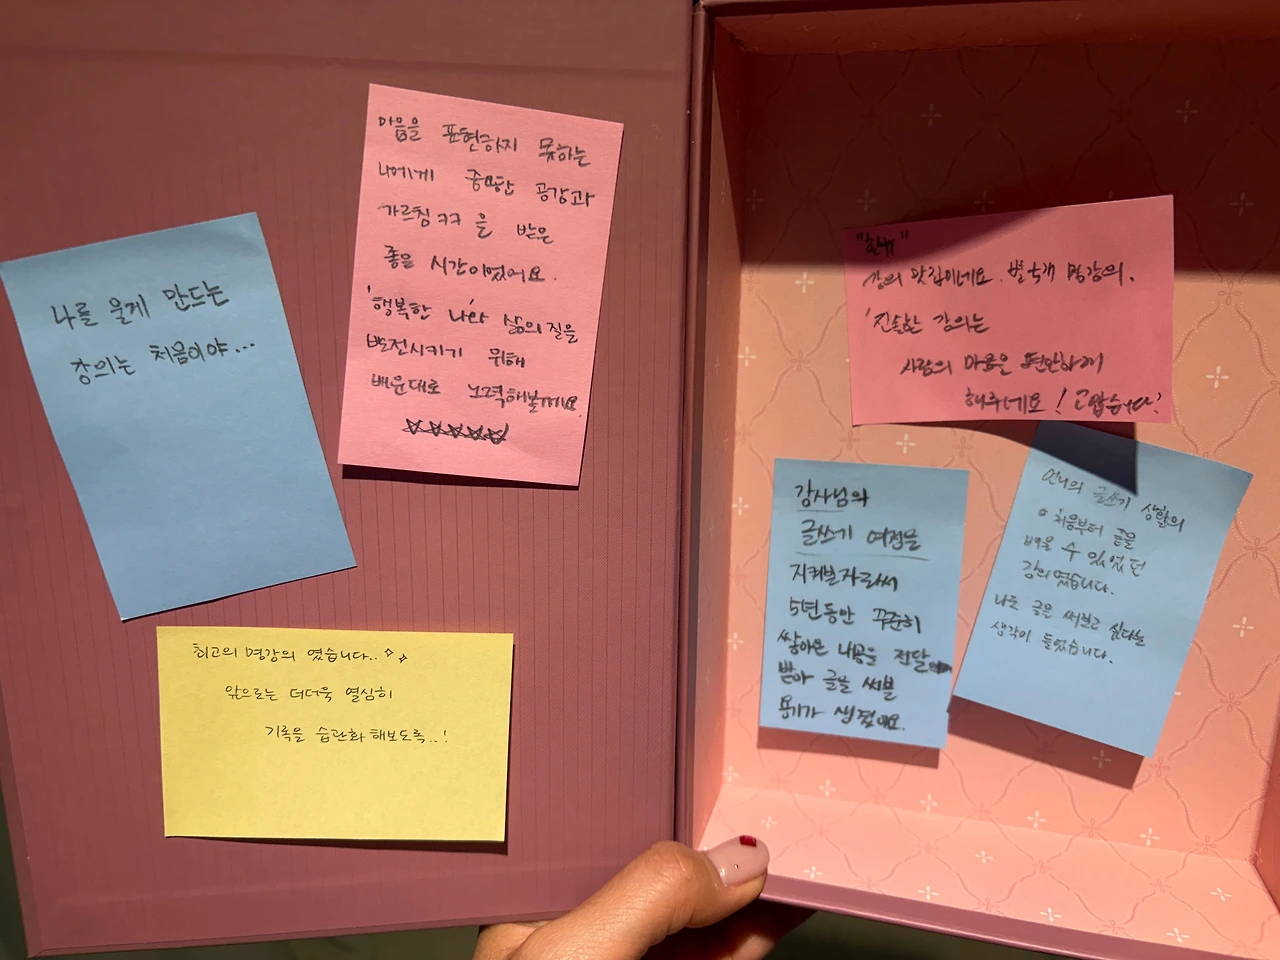 나를 울게 만드는
강의는 처음이야...
마음을 표현하지 못하는
나에게 중요한 공감과
가르침ㅋㅋ을 받은
좋은 시간이었어요.
'행복한 나'와 삶의 질을
발전시키기 위해
배운대로 노력해볼게요
☆☆☆☆☆
최고의 명강의 였습니다..
앞으로는 더더욱 열심히
기록을 습관화 해보도록..!
강의 맛집이네요. 별 5개 명강의.
'진솔한 강의는
사람의 마음을 편안하게
해주네요! 고맙습니다'
강사님의
글쓰기 여정을
지켜본자로써
5년동안 꾸준히
쌓아온 내공을 전달
받아 글을 써볼
용기가 생겼어요.
언니의 글쓰기 생활의
처음부터 끝을
배울 수 있었던
강의였습니다.
나도 글을 써보고 싶다는
생각이 들었습니다.